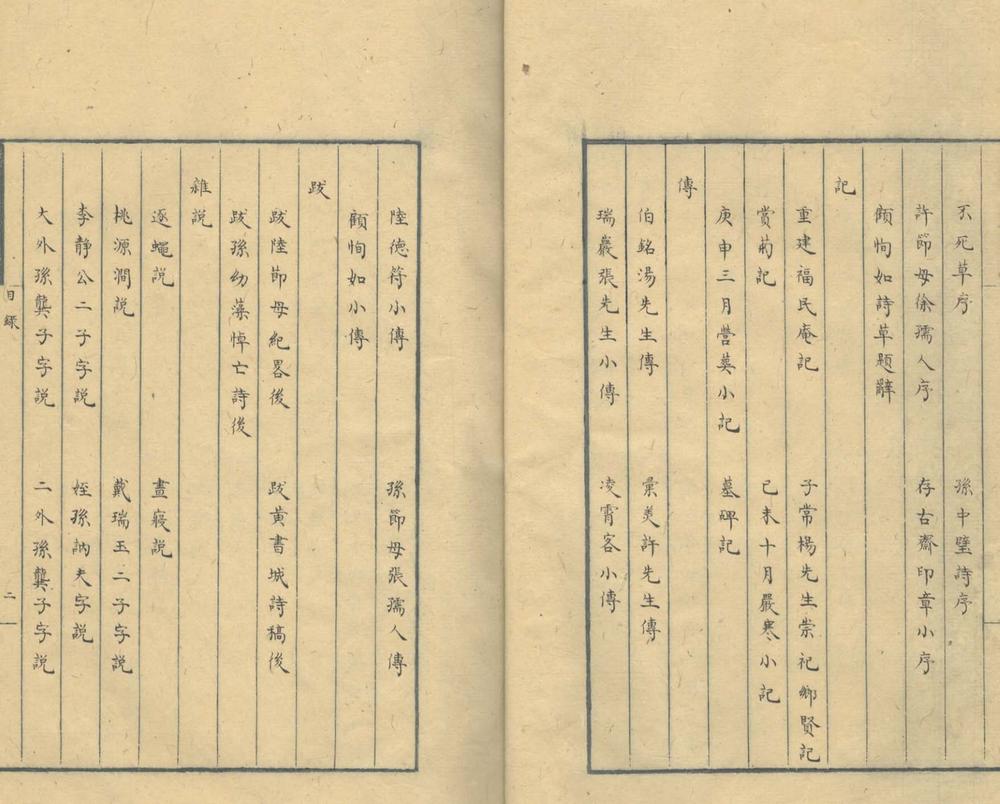 不死草序　孫中璧詩序
許節母徐孺人序　存古齋印章小序
顧恂如詩草題辭
記
重建福民庵記　子常楊先生崇祀鄉賢記
賞菊記　己未十月嚴寒小記
庚申三月營葬小記　墓碑記
傳
伯銘湯先生傳　彙美許先生傳
瑞巖張先生小傳　凌霄客小傳
陸德符小傳　孫節母張孺人傳
顧恂如小傳
跋
跋陸節母紀畧後　跋黃書城詩稿後
跋孫幼藻悼亡詩後
雜說
逐蠅説　晝寢説
桃源澗説　戴瑞玉二子字説
李靜公二子字説　姪孫訥夫字説
大外孫龔子字説　二外孫龔子字説
目錄　二